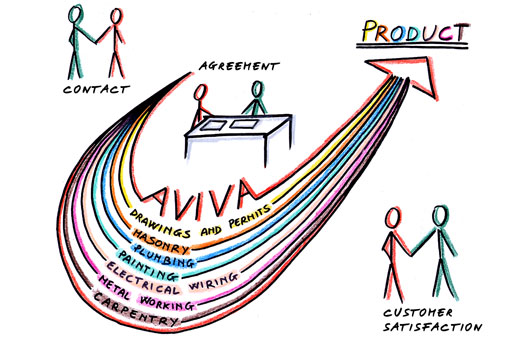 PRODUCT
AGREEMENT
CONTACT
AVIVA
DRAWINGS AND PERMITS
MASONRY
PLUMBING
PAINTING
ELECTRICAL WIRING
METAL WORKING
CARPENTRY
CUSTOMER
SATISFACTION